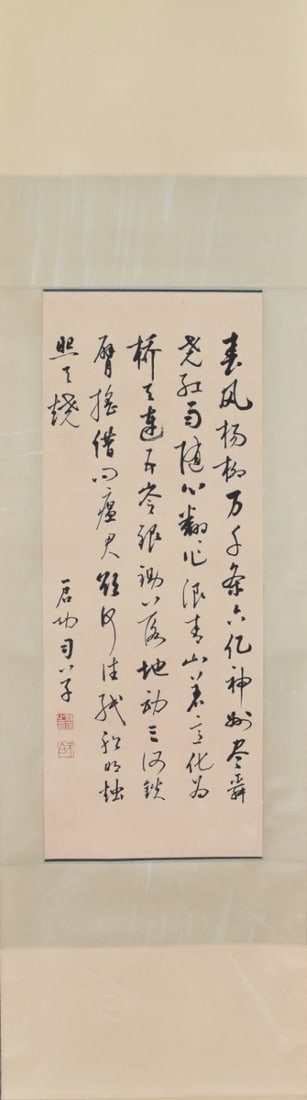 春风杨柳万千条六亿神州尽舜
尧红雨随心翻作浪青山着意化为
桥天连五岭银锄落地动三河铁
臂摇借问瘟君欲何往纸船明烛
照天烧
启功